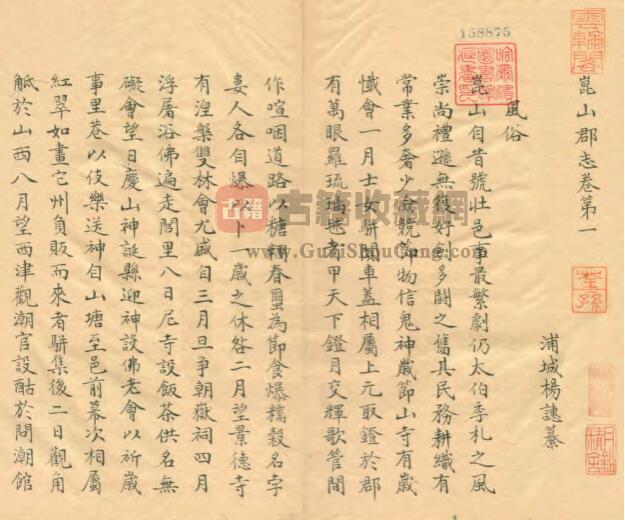 158875
雲輪閣
崑山郡志卷第一
荃孫
浦城楊譓纂
風俗
崑山自昔號壯邑事最繁劇仍太伯季札之風
崇尚禮遜無復好劍多鬪之舊其民務耕織有
常業多奢少儉競節物信鬼神歲節山寺有歲
懺會一月士女駢闐車蓋相屬上元取鐙於郡
有萬眼羅琉璃毬者甲天下鐙月交輝歌管間
作喧咽道路以糖糰春蠒為節食爆糯穀名孛
婁人各自爆以卜一歲之休咎二月望景德寺
有涅槃雙林會尤盛自三月旦爭朝嶽祠四月
浮屠浴佛遍走閭里八日尼寺設飯茶供名無
礙會望日慶山神誕縣迎神設佛老會以祈歲
事里巷以伎樂送神自山塘至邑前幕次相屬
紅翠如畫它州負販而來者駢集後二日觀角
觝於山西八月望西津觀潮官設酤於問潮館
古籍
古籍收藏網
www.GuJiShouCang.com